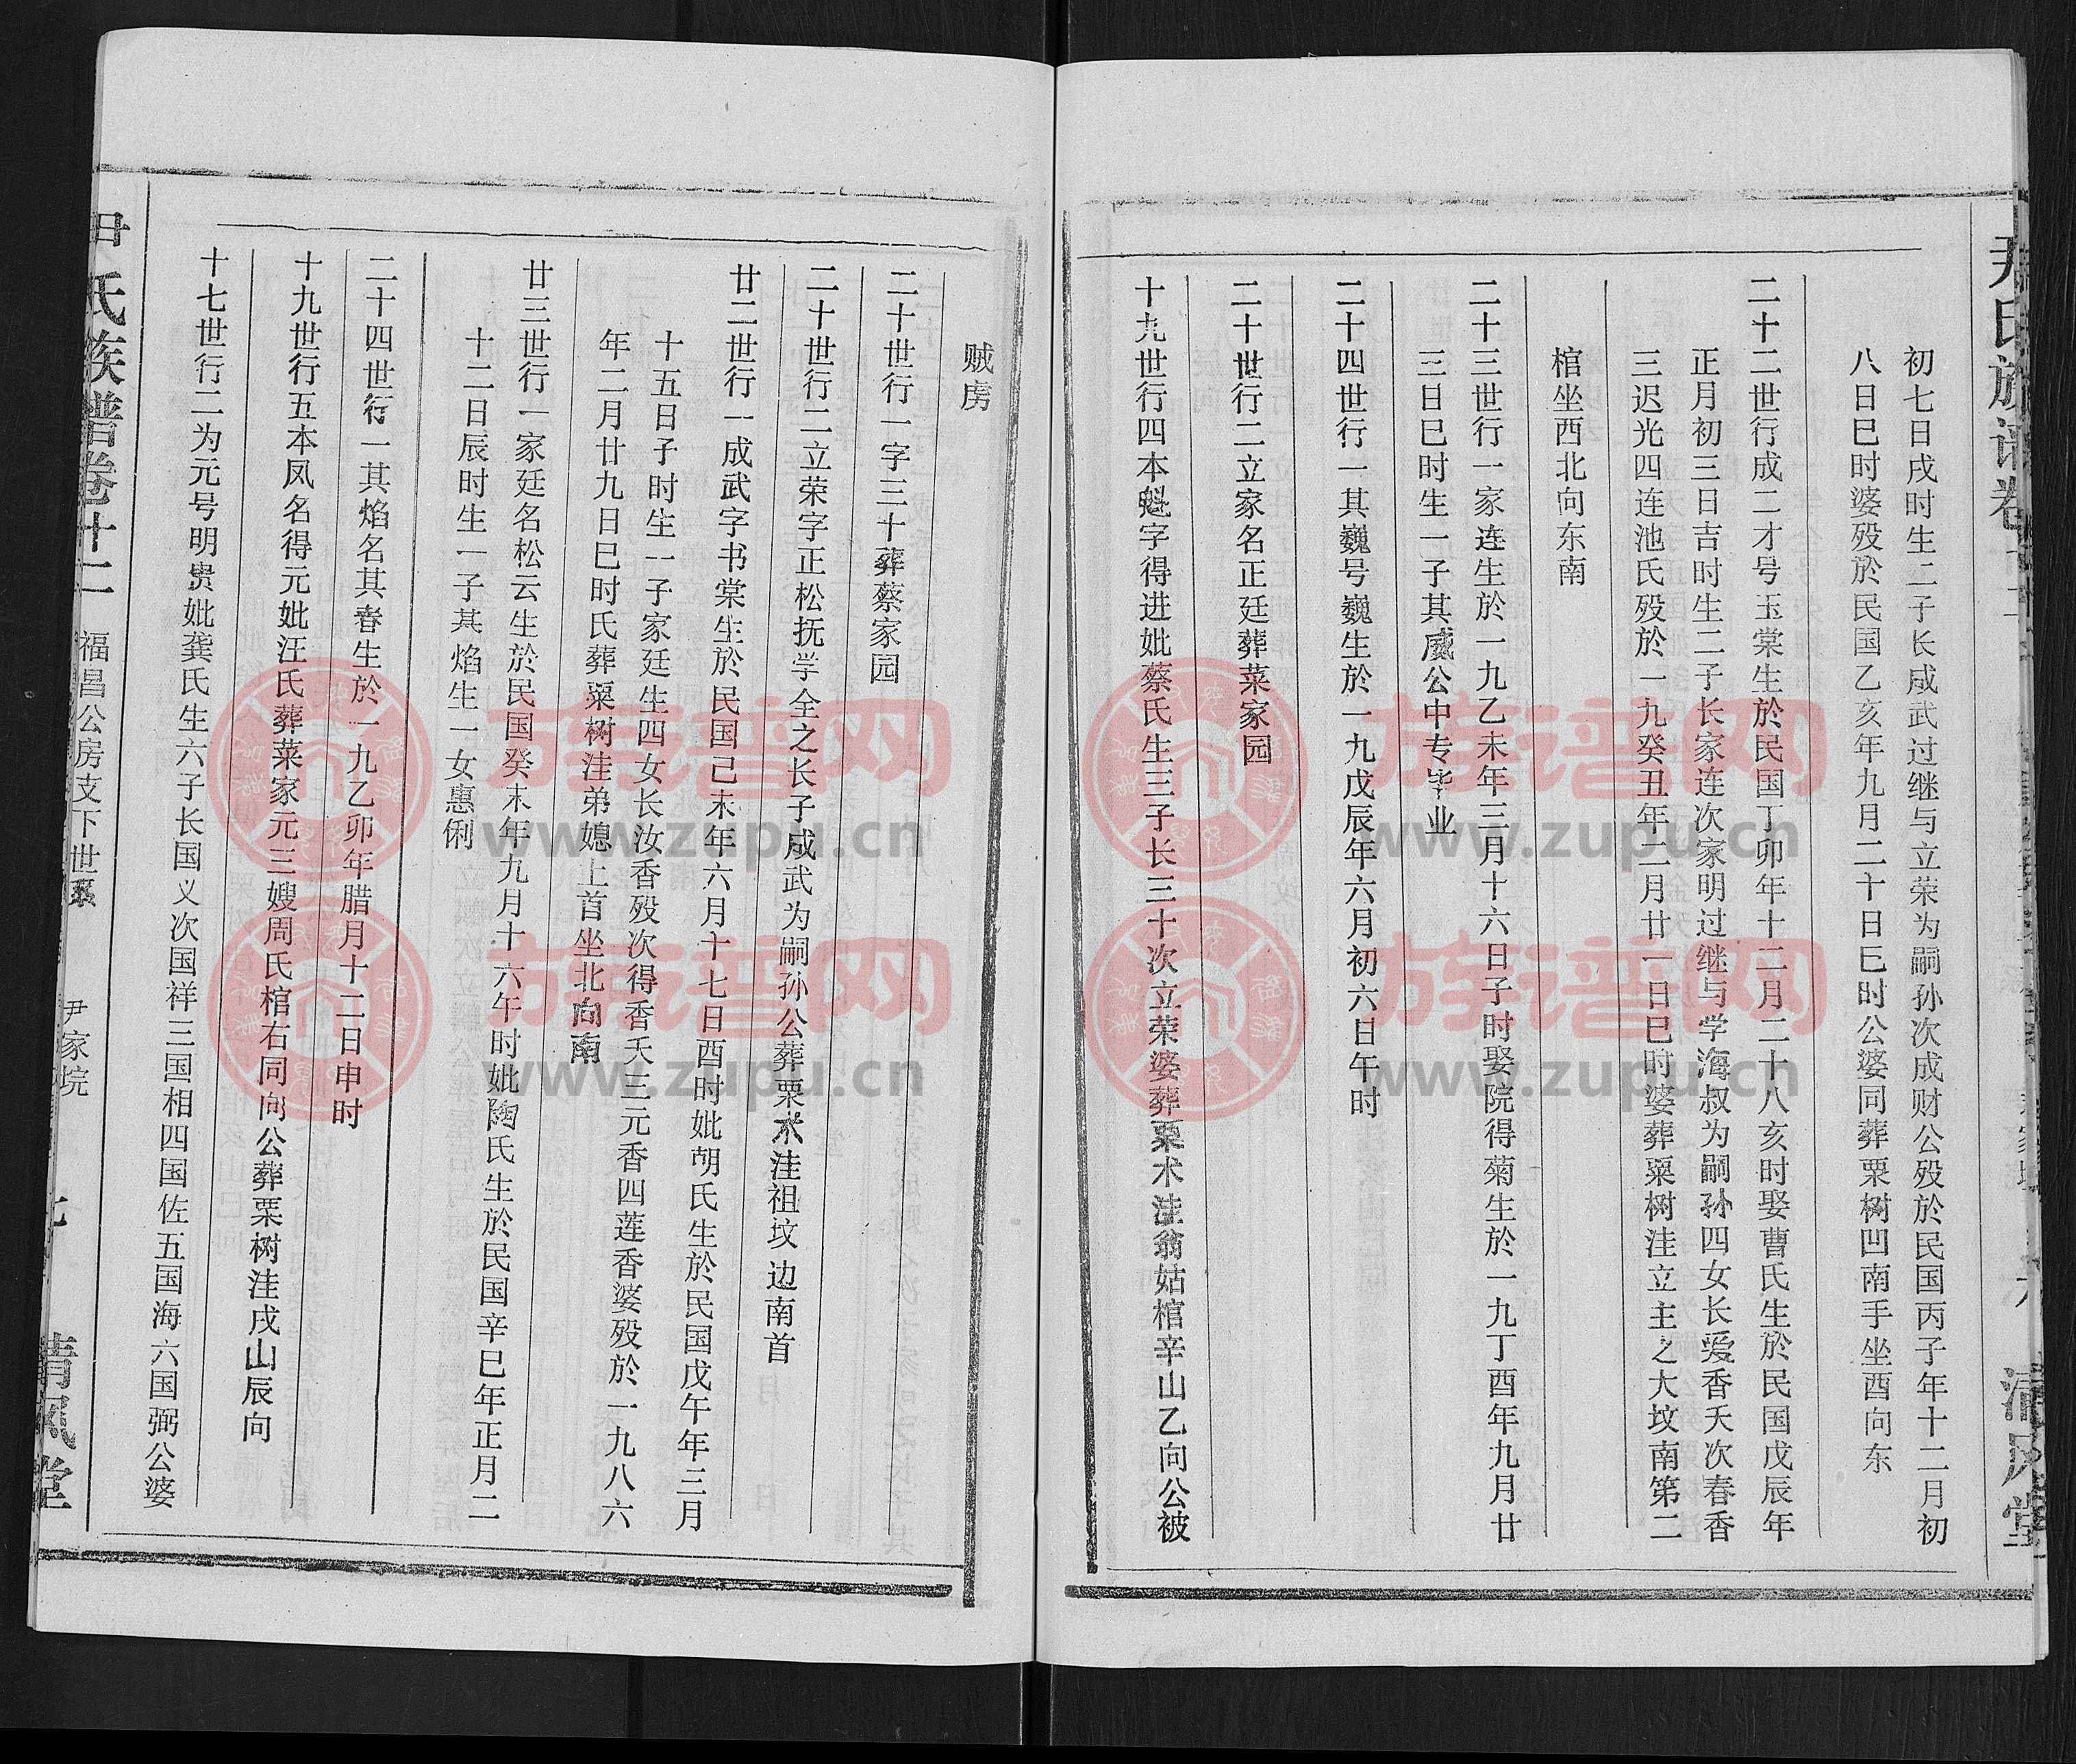 尹氏族谱卷十二
六
清风堂
初七日戌时生二子长成武过继与立荣为嗣孙次成财公殁於民国丙子年十二月初
八日巳时婆殁於民国乙亥年九月二十日巳时公婆同葬栗树凹南手坐酉向东
二十二世行成二才号玉棠生於民国丁卯年十二月二十八亥时娶曹氏生於民国戊辰年
正月初三日吉时生二子长家连次家明过继与学海叔为嗣孙四女长爱香夭次春香
三迟光四连池氏殁於一九癸丑年二月廿一日巳时婆葬粟树洼立主之大坟南第二
棺坐西北向东南
二十三世行一家连生於一九乙未年三月十六日子时娶院得菊生於一九丁酉年九月廿
三日巳时生一子其威公中专毕业
二十四世行一其巍号巍生於一九戊辰年六月初六日午时
二十世行二立家名正廷葬菜家园
十九世行四本魁字得进妣蔡氏生三子长三十次立荣婆葬粟术洼翁姑棺辛山乙向公被
贼虏
二十世行一字三十葬蔡家园
二十世行二立荣字正松抚学全之长子成武为嗣孙公葬栗术洼祖坟边南首
廿二世行一成武字书棠生於民国己未年六月十七日酉时妣胡氏生於民国戊午年三月
十五日子时生一子家廷生四女长汝香殁次得香夭三元香四莲香婆殁於一九八六
年二月廿九日巳时氏葬粟树洼弟媳上首坐北向南
廿三世行一家廷名松云生於民国癸未年九月十六午时妣陶氏生於民国辛巳年正月二
十二日辰时生一子其焰生一女惠俐
二十四世行一其焰名其春生於一九乙卯年腊月十二日申时
十九世行五本凤名得元妣汪氏葬菜家元三嫂周氏棺右同向公葬栗树洼戌山辰向
十七世行二为元号明贵妣龚氏生六子长国义次国祥三国相四国佐五国海六国弼公婆
尹氏族谱卷十二
福昌公房支下世系
尹家垸
七
清风堂
www.zupu.cn
族谱网
www.zupu.cn
族谱网
www.zupu.cn
族谱网
www.zupu.cn
族谱网